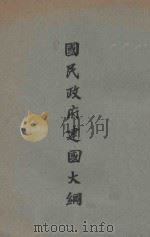 國民政府建國大綱